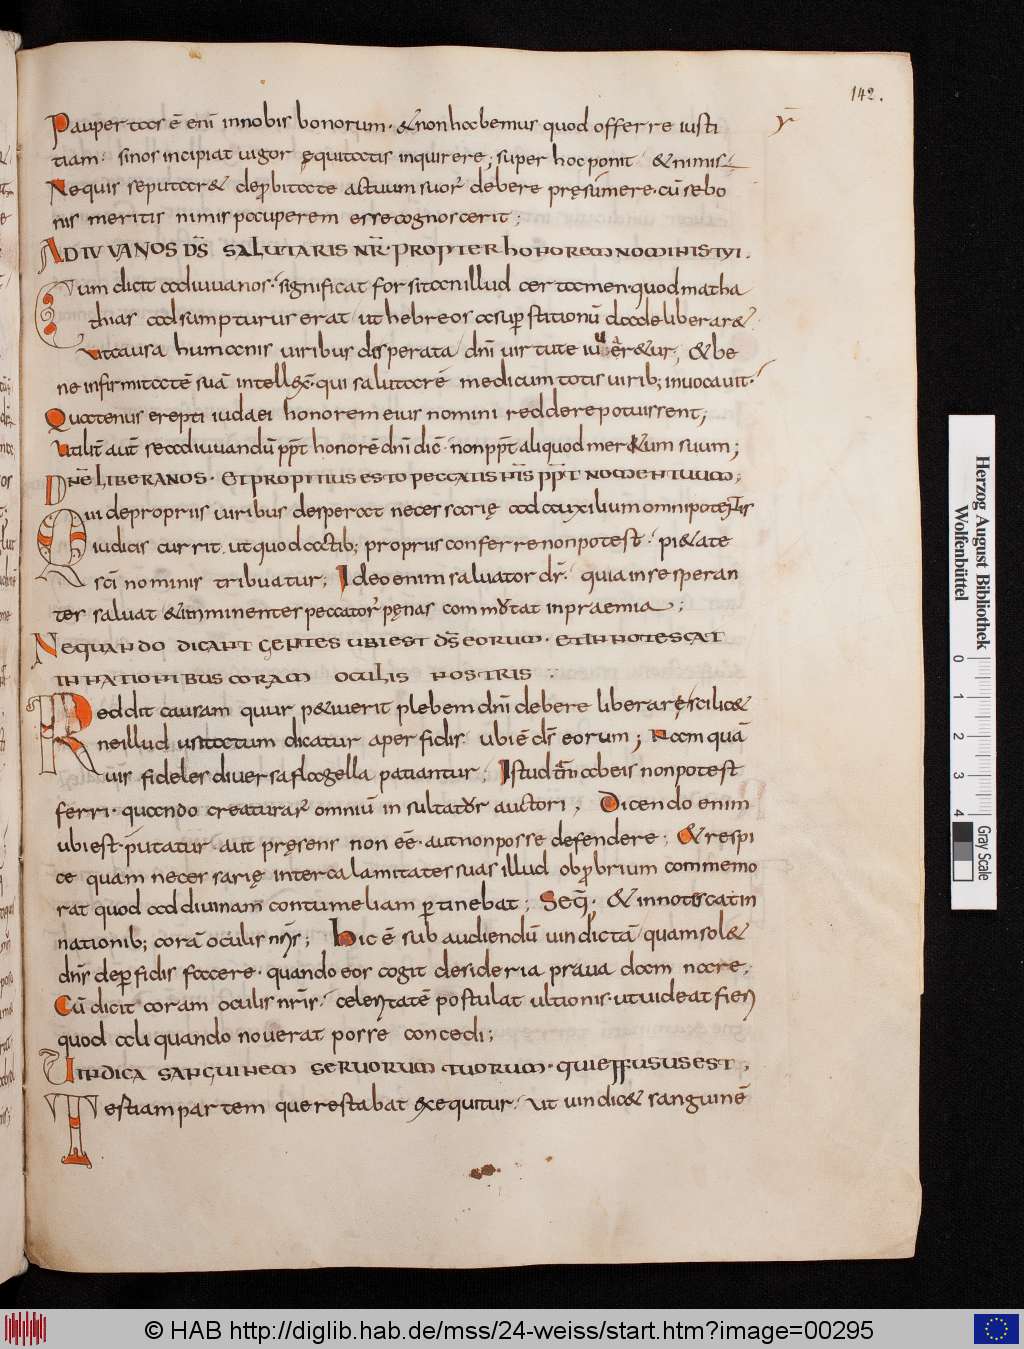 142.
Paupertas ē enī in nobis bonorum · & non habemus quod offerre iusti
tiam · si nos incipiat uigor ęquitatis inquirere; super hoc ponit & nimis
Ne quis se putar& de probitate actuum suor̄ debere pręsumere · cū se bo
nis meritis nimis pauperem esse cognoscerit;
ADIUVA NOS DS̄ SALUTARIS NR̄ · PROPTER HONOREM NOMINIS TUI .
Cum dicit adiuua nos · significat forsitan illud certamen · quod matha
thias adsumpturus erat ut hebreos a superstitionū clade liberar&
Ut causa humanis uiribus disperata dnī uirtute iuuar&ur, & be
ne infirmitatē suā intellexit · qui salutarē medicum totis uirib; inuocauit ·
Quatenus erepti iudaei honorem eius nomini reddere potuissent;
Utilit̄ aut̄ se adiuuandū ppt̄ honorē dnī dic̄ · non ppt̄ aliquod meritum suum;
DN̄E LIBERA NOS · ET PROPITIUS ESTO PECCATIS NR̄IS PPT̄ NOMEN TUUM;
Qui de propriis uiribus desperat necessarię ad auxilium omnipotentis
iudicis currit, ut quod actib; propriis conferre non potest · pi&ate
sc̄i nominis tribuatur; Ideo enim saluator dr̄ · quia in se speran
tes saluat & imminentes peccator̄ pęnas commutat in praemia;
NEQUANDO DICANT GENTES UBI EST DS̄ EORUM · ET INNOTESCAT
IN NATIONIBUS CORAM OCULIS NOSTRIS
Reddit causam quur p&iuerit plebem dnī debere liberarę scilic&
ne illud usitatum dicatur a perfidis · ubi ē ds̄ eorum; Nam quā
uis fideles diuersa flagella patiantur, Istud tam̄ ab eis non potest
ferri · quando creaturar̄ omniū insultatur auctori, Dicendo enim
ubi est · putatur · aut pręsens non eē · aut non posse defendere; & respi
ce quam necessarię inter calamitates suas illud obprobrium commemo
rat quod ad diuinam contumeliam ptinebat; Seq̄ · & innotescat in
nationib; corā oculis nr̄is; Hic ē subaudiendū uindicta quam sol&
dn̄s de pfidis facere · quando eos cogit desideria praua dam nare,
Cū dicit coram oculis nr̄is · celeritatē postulat ultionis · ut uideat fieri
quod alii quando nouerat posse concedi;
UINDICA SANGUINEM SERUORUM TUORUM · QUI EFFUSUS EST,
Testiam partem que restabat exequitur · ut uindic& sanguinē
Herzog August Bibliothek
Wolfenbüttel
0 1 2 3 4
Gray Scale
© HAB http://diglib.hab.de/mss/24-weiss/start.htm?image=00295